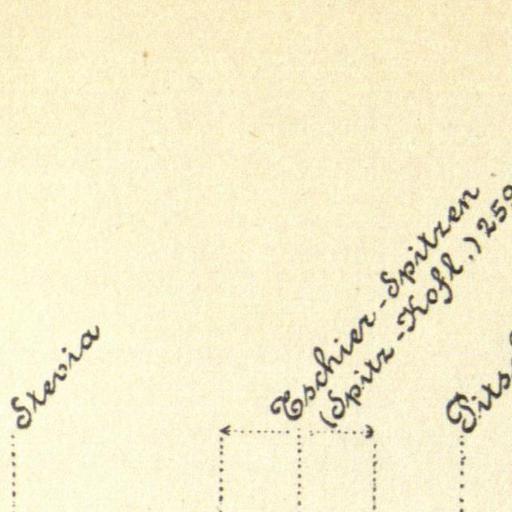 Stevia
Tschier-Spitzen
(Spitz-Kofl.) 259
Pits